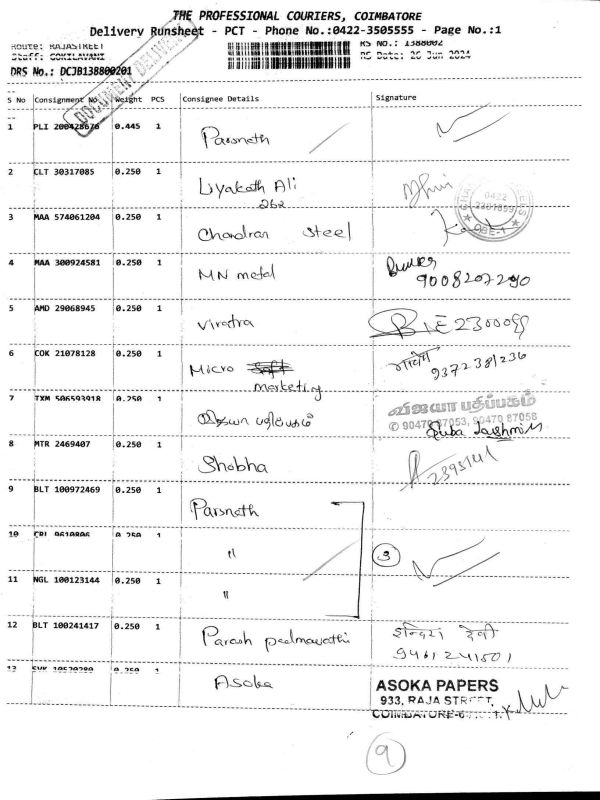 THE PROFESSIONAL COURIERS, COIMBATORE
Delivery Runsheet - PCT - Phone No.:0422-3505555 - Page No.:1
Route: RAJASTREET RS No.: 1388002
Staff: GOKILAVANI RS Date: 26 Jun 2024
DRS No.: DCJB138800201
DOCUMENT DELIVERY
S No Consignment No Weight PCS Consignee Details Signature
1 PLI 200428676 0.445 1 Parsnath
2 CLT 30317085 0.250 1 Liyakath Ali
262
0422
2301899
3 MAA 574061204 0.250 1 Chandran steel
CBE-1
4 MAA 300924581 0.250 1 MN metal
9008207290
5 AMD 29068945 0.250 1 Viratra
6 COK 21078128 0.250 1 Micro
marketing
9372381236
7 TXM 506593918 0.250 1 விஜயா பதிப்பகம் விஜயா பதிப்பகம்
© 90470 87053, 90470 87058
Suba Lakshmi
8 MTR 2469407 0.250 1 Shobha
9 BLT 100972469 0.250 1 Parsnath
10 CRL 9610806 0.250 1 〃 3
11 NGL 100123144 0.250 1 〃
12 BLT 100241417 0.250 1 Parash padmavathi इन्दिरा देवी
9461241501
13 SVK 10570280 0.250 1 Asoka ASOKA PAPERS
933, RAJA STREET,
9